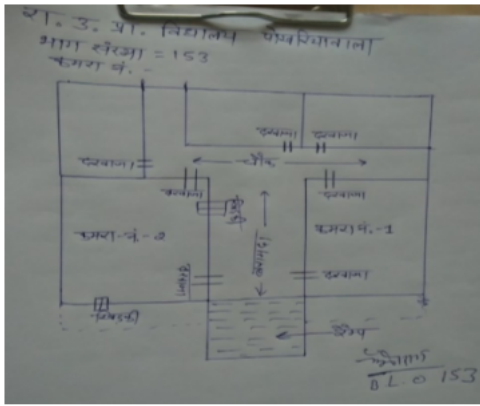 रा. उ. प्रा. विद्यालय
भाग संख्या = 153
कमरा नं. -
दरवाजा
दरवाजा
दरवाजा
चौक
दरवाजा
दरवाजा
खिड़की
कमरा नं.-2
कमरा नं.-1
दरवाजा
दरवाजा
खिडकी
रैम्प
B L O 153